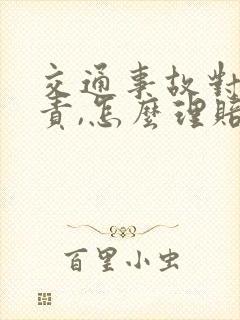 交通事故對
責,怎麼理賠
百里小虫